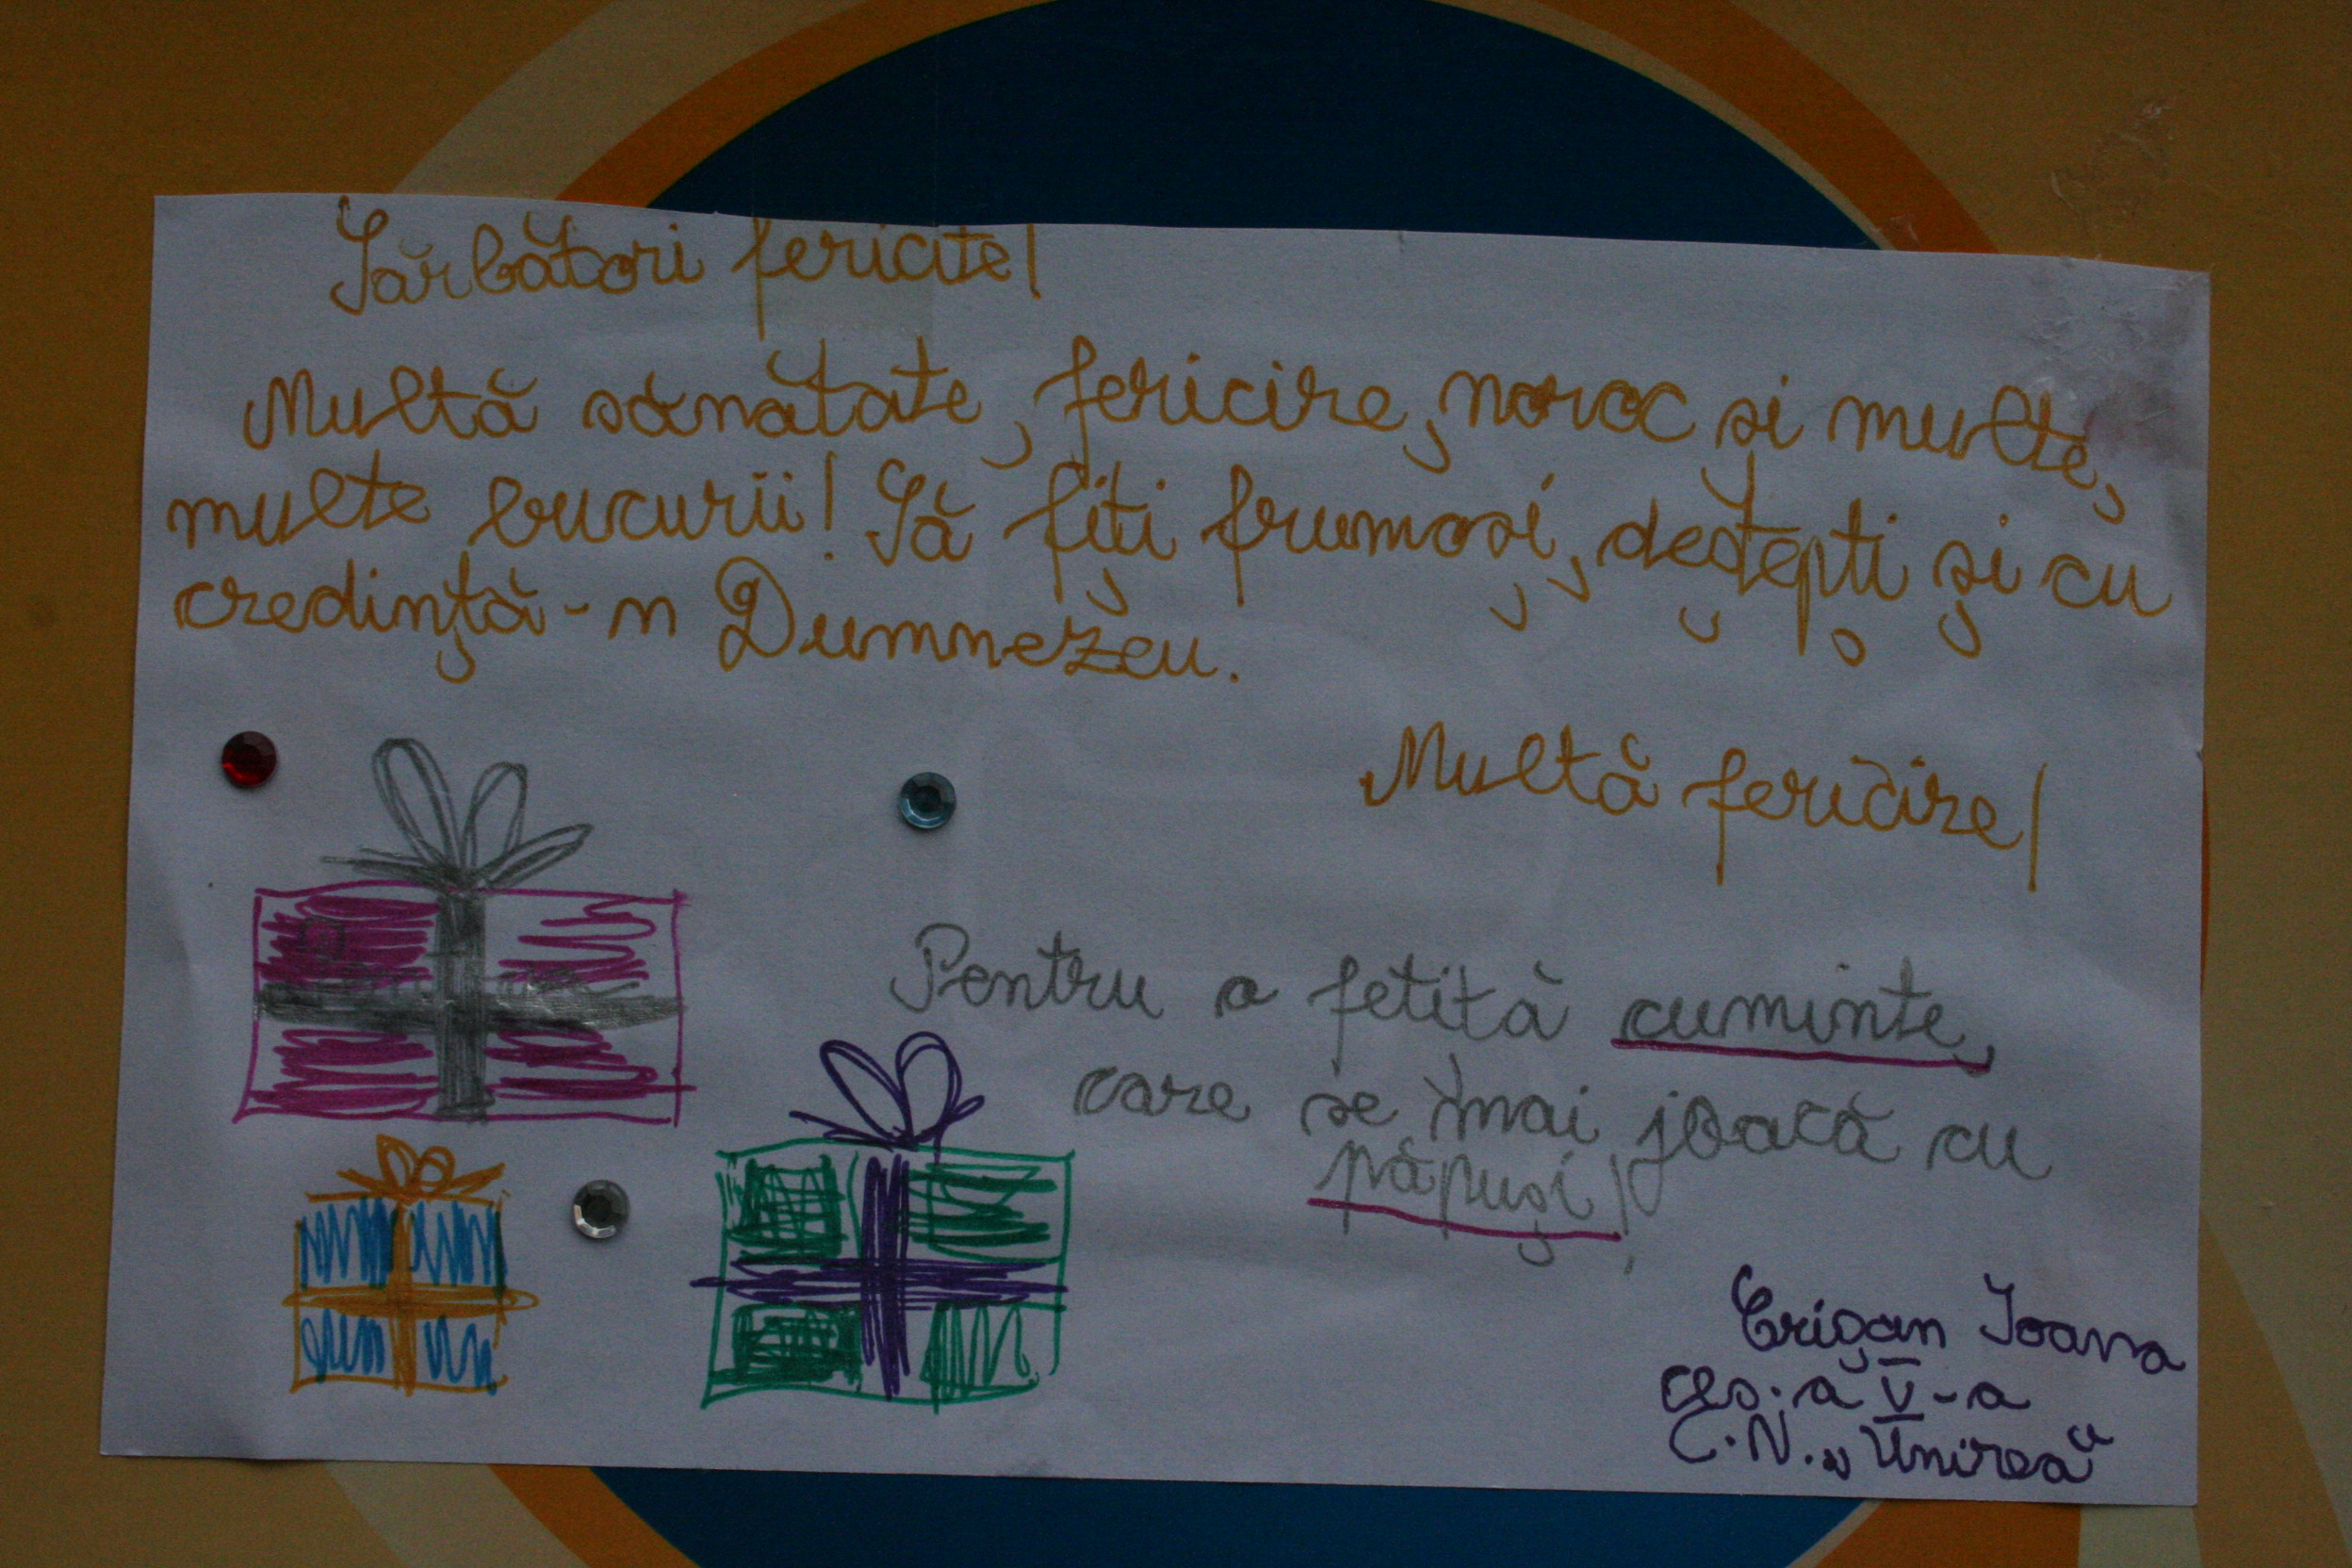 Sărbători fericite!
Multă sănătate, fericire, noroc și multe,
multe bucurii! Să fiți frumoși, deștepți și cu
credință-n Dumnezeu.
Multă fericire!
Pentru o fetită cuminte,
care se mai joacă cu
păpuși!
Crigan Ioana
cls. a V-a
C.N. „Unirea"